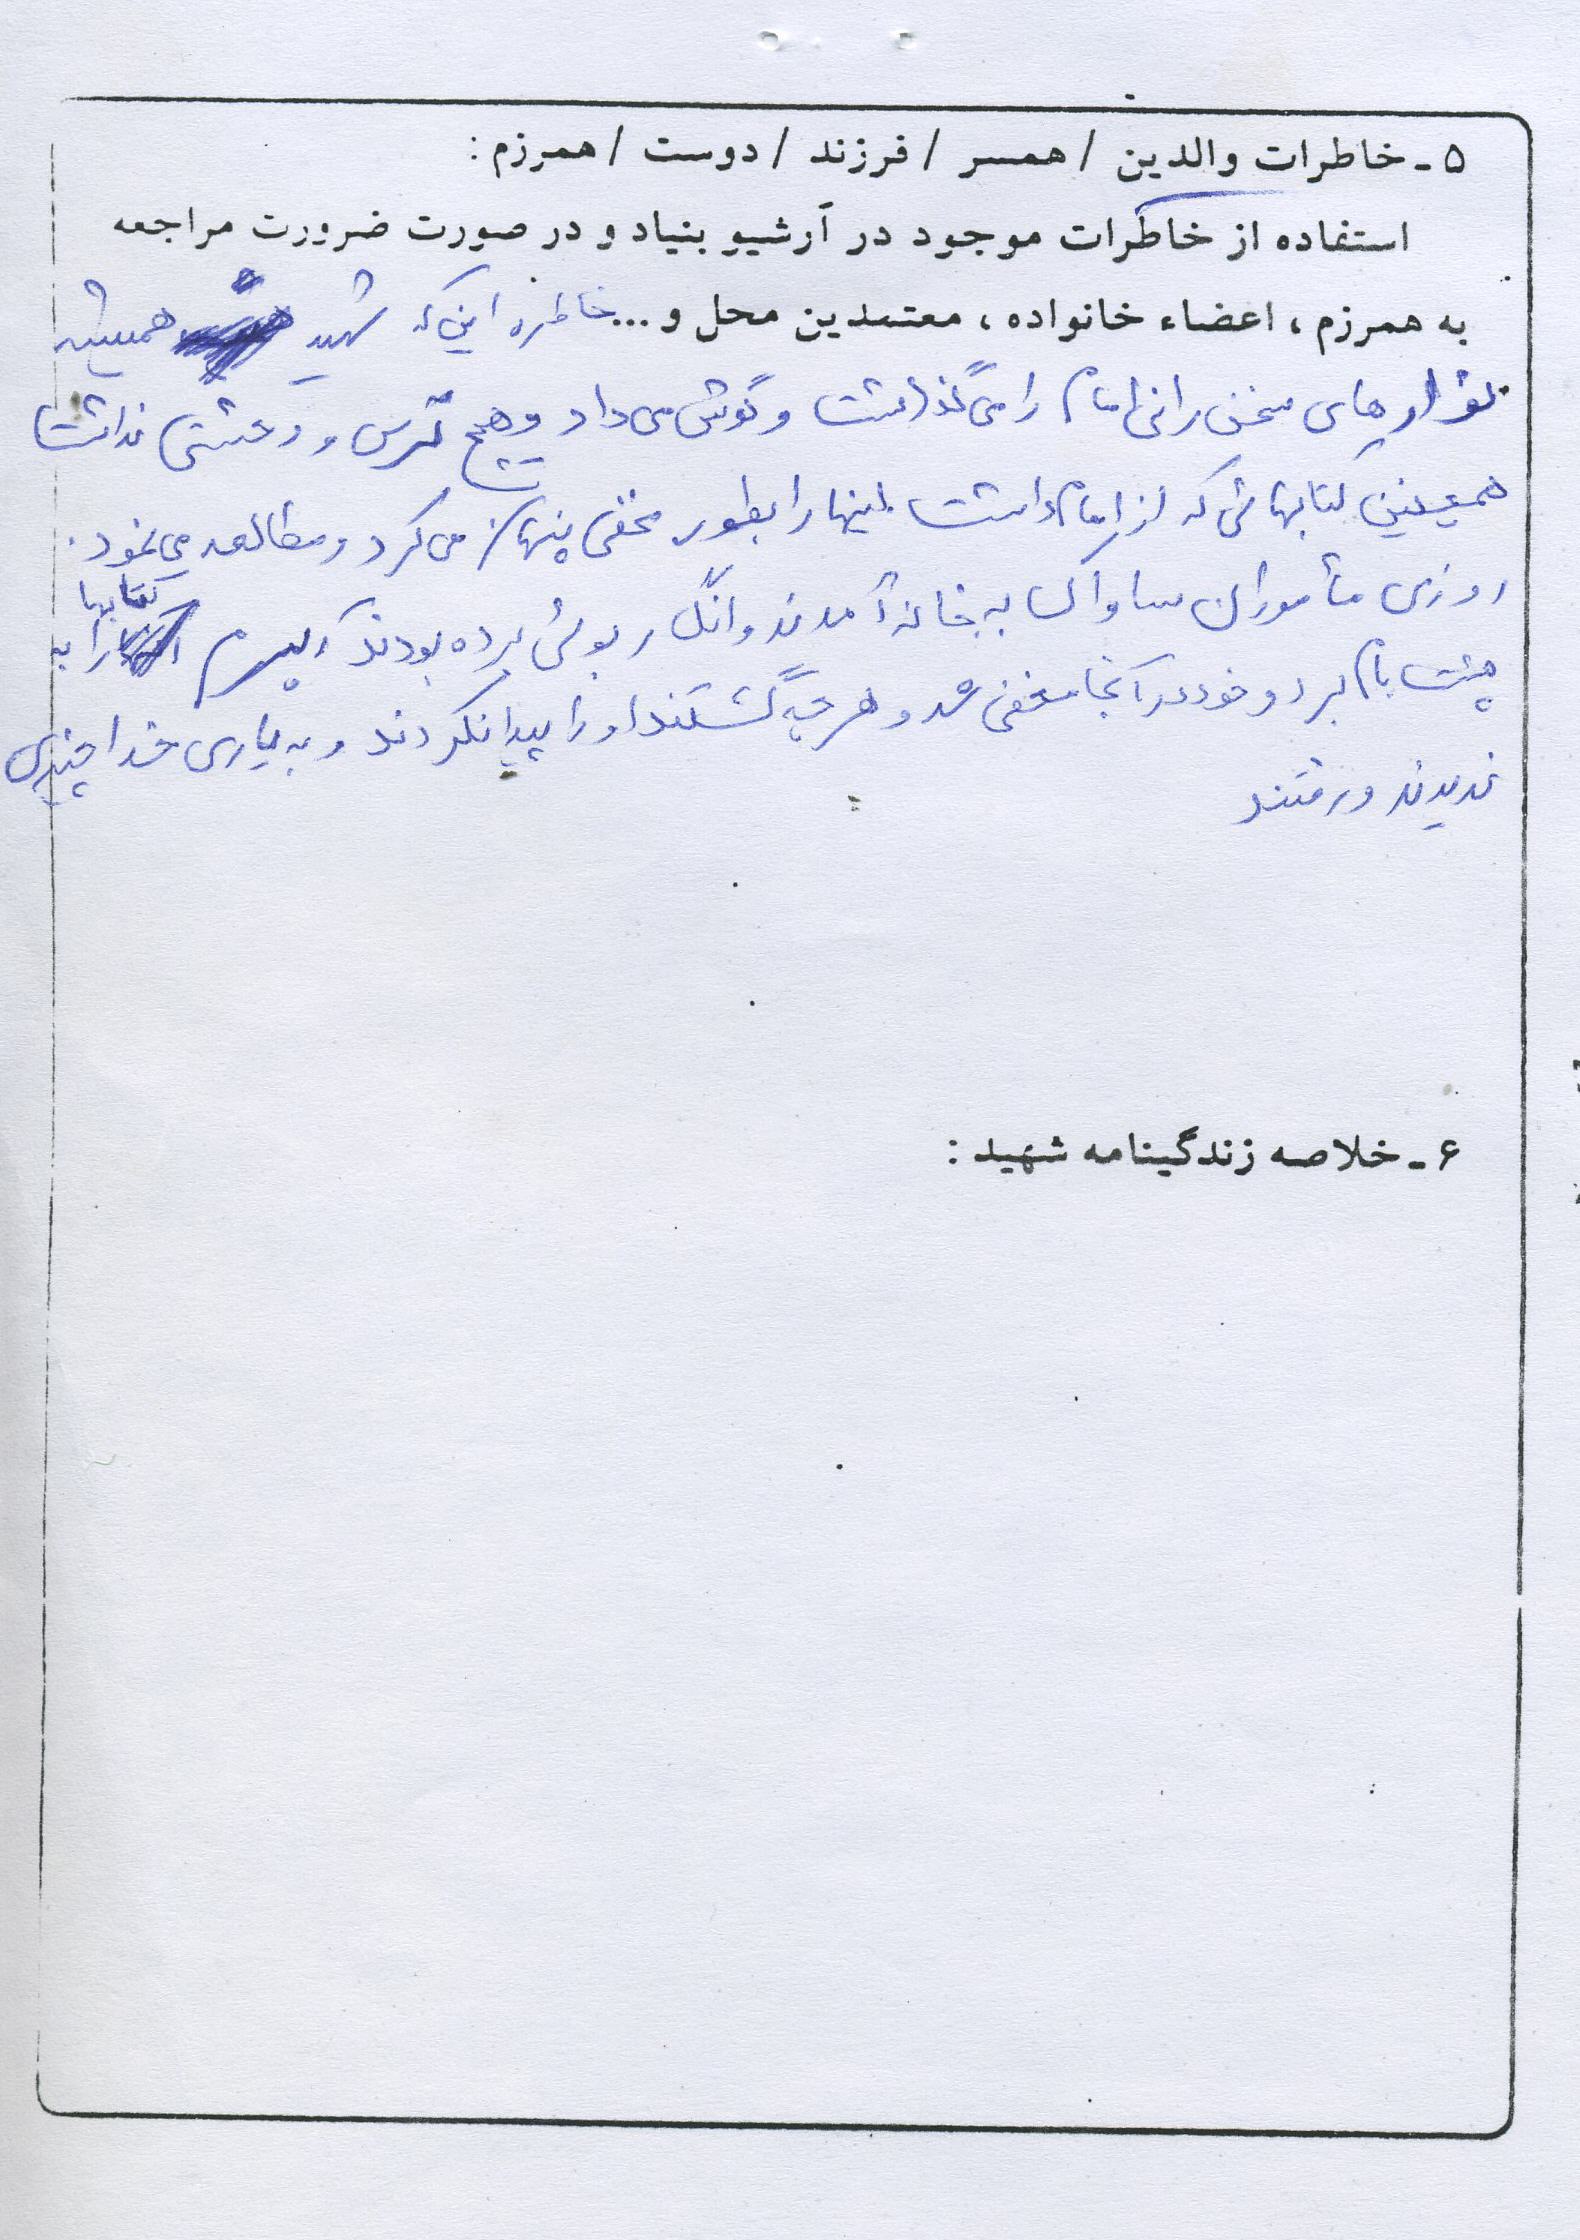 ۵ - خاطرات والدین / همسر / فرزند / دوست / همرزم :
استفاده از خاطرات موجود در آرشیو بنیاد و در صورت ضرورت مراجعه
به همرزم ، اعضاء خانواده ، معتمدین محل و ... خاطره اینکه شهید همیشه
نوارهای سخنرانی امام را می گذاشت و گوش می داد و هیچ ترس و وحشتی نداشت
همچنین کتابهائی که از امام داشت اینها را بطور مخفی پنهان می کرد و مطالعه می نمود.
روزی مأموران ساواک به خانه آمدند و انگار بوئی برده بودند که پسرم کتابها را به
پشت بام برد و خود در آنجا مخفی شد و هر چه گشتند او را پیدا نکردند و به یاری خدا چیزی
ندیدند و رفتند
۶ - خلاصه زندگینامه شهید :